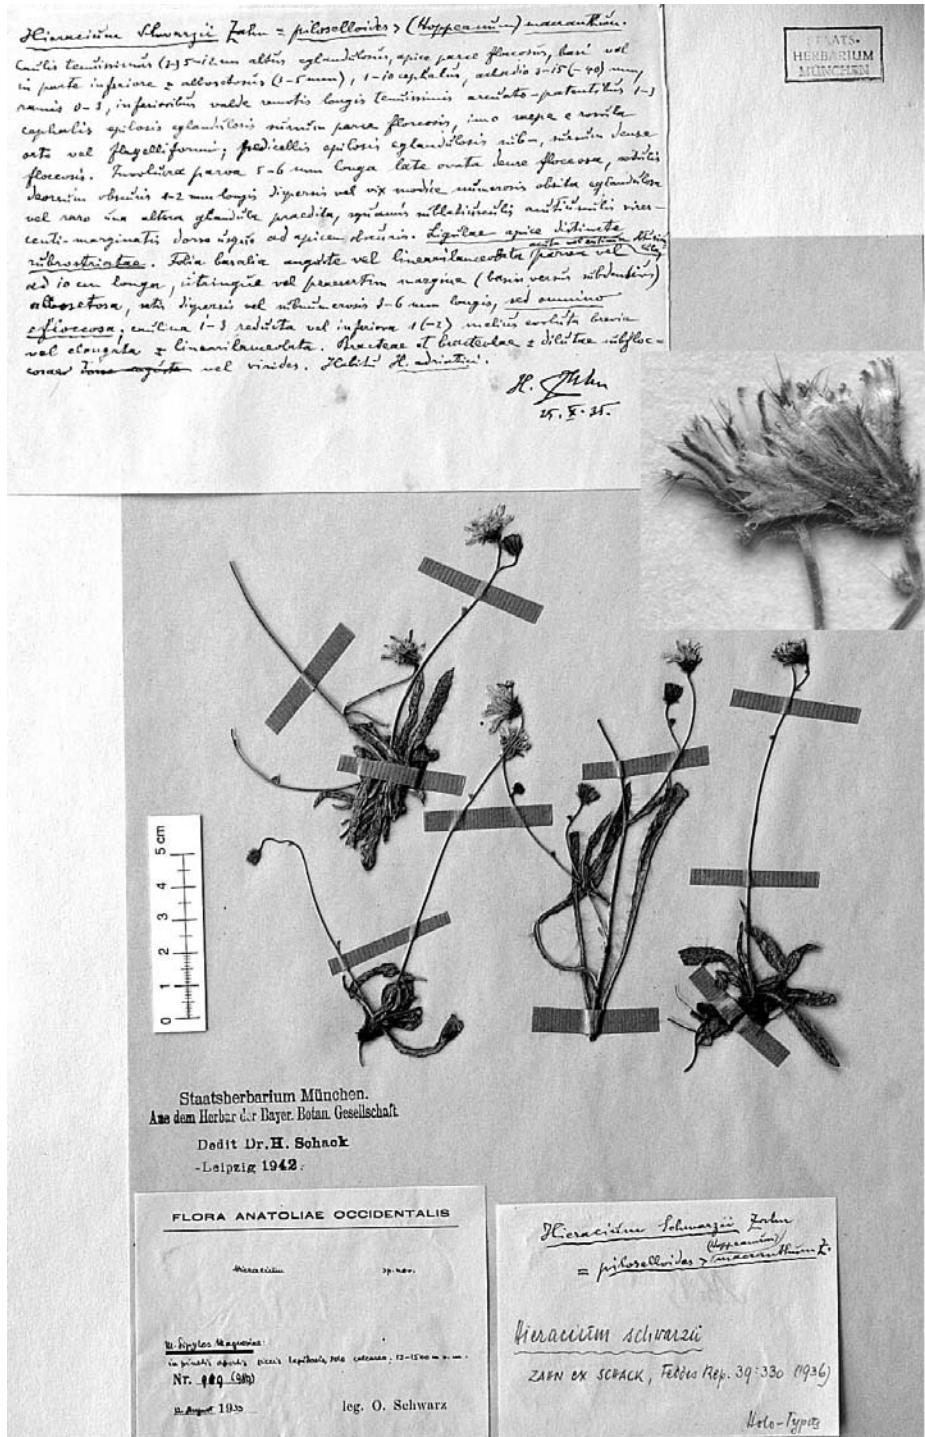 Hieracium Schwarzii Zahn = piloselloides > (Hoppeanum) macranthum.
Caulis tenuissimus (3-) 5-12 cm altus eglandulosus, apice parce floccosus, basi vel
in parte inferiore ± albosetosus (3-5 mm), 1-10 cephalus, acladio 3-15 (-40) mm,
ramis 0-3, inferioribus valde remotis longis tenuissimis arcuato-patentibus 1-3
cephalis epilosis eglandulosis sursum parce floccosis, imo saepe e rosula
orto vel flagelliformi; pedicellis epilosis eglandulosis sub-, sursum dense
floccosis. Involucra parva 5-6 mm longa late ovata dense floccosa,
deorsum obscuris 1-2 mm longis dispersis vel vix modice numerosis obsita eglandulosa
vel raro una altera glandula praedita, squamis sublatiusculis acutiusculis vires-
centi-marginatis dorso usque ad apicem obscuris. Ligulae apice distincte
rubrostriatae. Folia basalia anguste vel linearilanceolata parva vel
ad 10 cm longa, utrinque vel praesertim margine (basin versus subdensius)
albosetosa, setis dispersis vel subnumerosis 3-6 mm longis, sed omnino
efloccosa; caulina 1-3 reducta vel inferiora 1(-2) melius evoluta brevia
vel elongata ± linearilanceolata. Bracteae et bracteolae ± dilutae subfloc-
cosae vel virides. Habitu H. adriatici.
H. Zahn
25. X. 35.
STAATS-
HERBARIUM
MÜNCHEN
5 cm
4
3
2
1
0
Staatsherbarium München.
Aus dem Herbar der Bayer. Botan. Gesellschaft
Dedit Dr. H. Schack
-Leipzig 1942.
FLORA ANATOLIAE OCCIDENTALIS
Hieracium sp. nov.
M. Sipylos Magnesiae:
in pinetis apertis siccis lapidosis, solo calcareo; 12-1500 m s. m.
Nr.
August 1933 leg. O. Schwarz
Hieracium Schwarzii Zahn
= piloselloides > (Hoppeanum) macranthum Z.
Hieracium schwarzii
ZAHN ex SCHACK, Feddes Rep. 39:330 (1936)
Holo-Typus